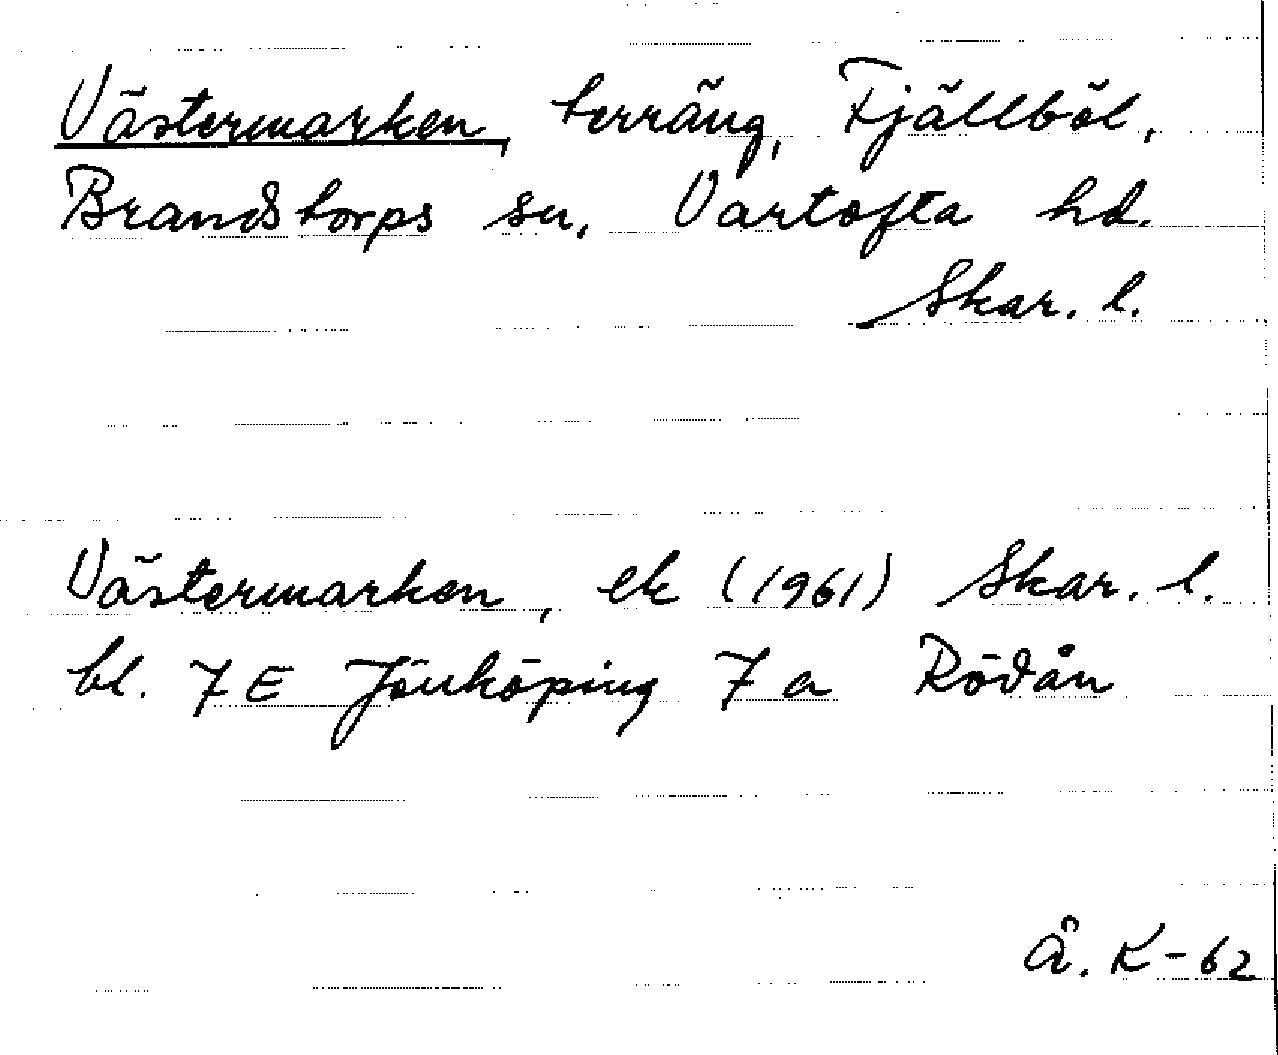 Västermarken, terräng, Fjällböl,
Brandstorps sn, Vartofta hd.
Skar. l.
Västermarken, ek (1961) Skar. l.
bl. 7 E Jönköping 7 a Rödån
Å. K-62